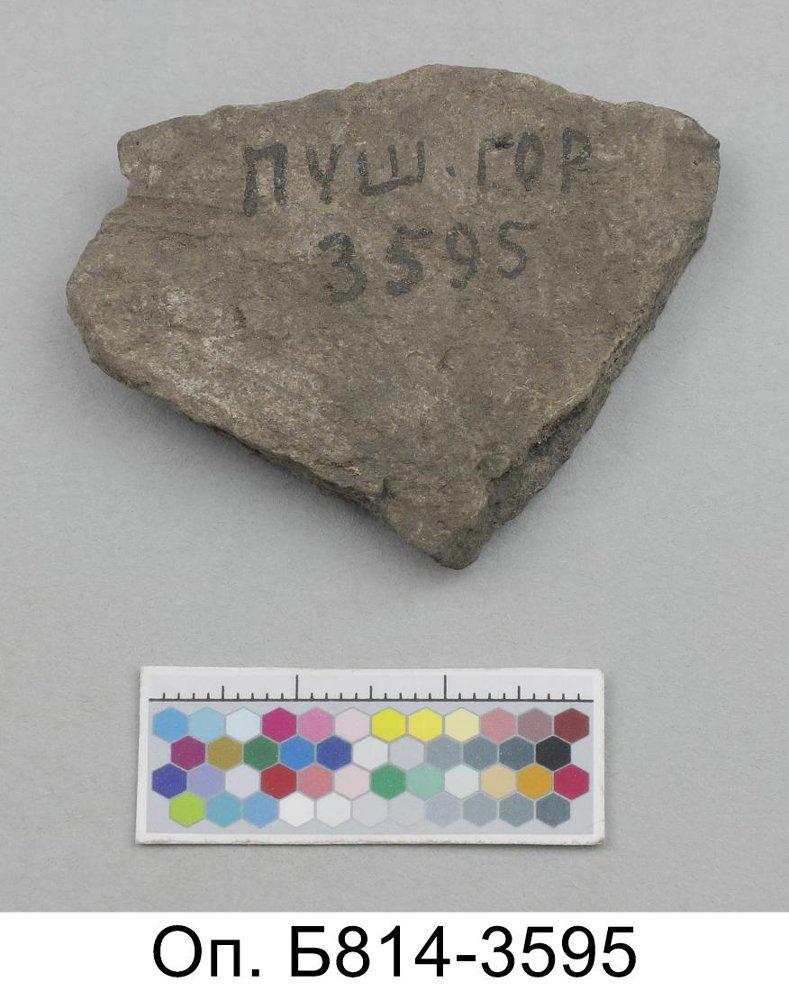 ПУШ.ГОР
3595
Оп. Б814-3595